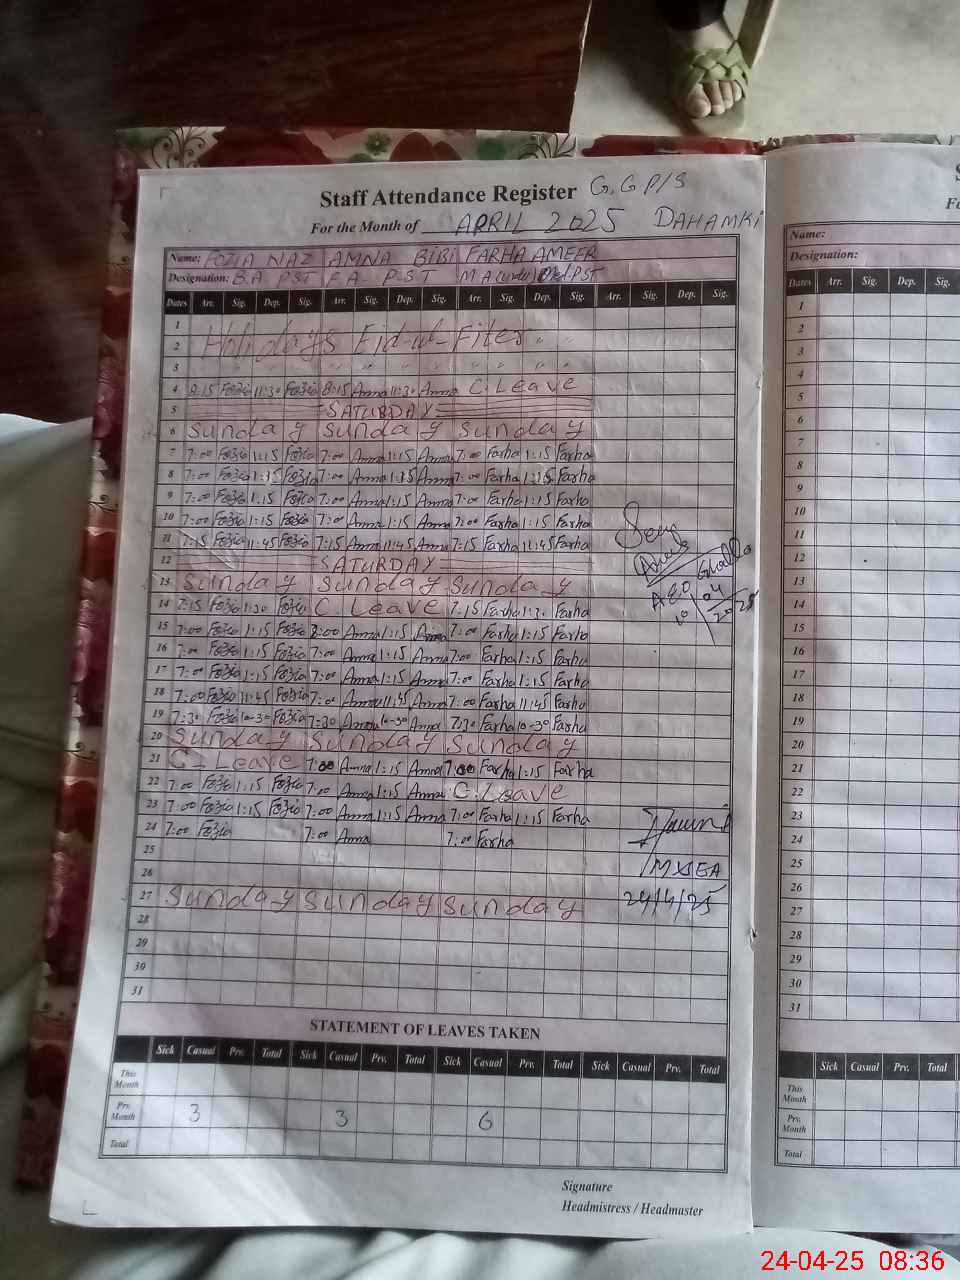 Staff Attendance Register G.G P/S
For the Month of APRIL 2025 DAHAMKI
Name: FOZIA NAZ AMNA BIBI FARHA AMEER
Designation: B.A PST F.A PST M A (urdu) PST
Dates Arr. Sig. Dep. Sig. Arr. Sig. Dep. Sig. Arr. Sig. Dep. Sig. Arr. Sig. Dep. Sig.
1
2 Holidays Eid-ul-Fiter " "
3
4 8:15 Fozia 11:30 Fozia 8:15 Amna 11:30 Amna C. Leave
5 SATURDAY
6 Sunday Sunday Sunday
7 7:00 Fozia 1:15 Fozia 7:00 Amna 1:15 Amna 7:00 Farha 1:15 Farha
8 7:00 Fozia 1:15 Fozia 7:00 Amna 1:15 Amna 7:00 Farha 1:15 Farha
9 7:00 Fozia 1:15 Fozia 7:00 Amna 1:15 Amna 7:00 Farha 1:15 Farha
10 7:00 Fozia 1:15 Fozia 7:00 Amna 1:15 Amna 7:00 Farha 1:15 Farha
11 7:15 Fozia 11:45 Fozia 7:15 Amna 11:45 Amna 7:15 Farha 11:45 Farha
12 SATURDAY
13 Sunday Sunday Sunday
14 7:15 Fozia 1:30 Fozia C. Leave 7:15 Farha 1:30 Farha
AEO
10/04/2025
15 7:00 Fozia 1:15 Fozia 7:00 Amna 1:15 Amna 7:00 Farha 1:15 Farha
16 7:00 Fozia 1:15 Fozia 7:00 Amna 1:15 Amna 7:00 Farha 1:15 Farha
17 7:00 Fozia 1:15 Fozia 7:00 Amna 1:15 Amna 7:00 Farha 1:15 Farha
18 7:00 Fozia 11:45 Fozia 7:00 Amna 11:45 Amna 7:00 Farha 11:45 Farha
19 7:30 Fozia 10-30 Fozia 7:30 Amna 10-30 Amna 7:30 Farha 10-30 Farha
20 Sunday Sunday Sunday
21 C-Leave 7:00 Amna 1:15 Amna 7:00 Farha 1:15 Farha
22 7:00 Fozia 1:15 Fozia 7:00 Amna 1:15 Amna C. Leave
23 7:00 Fozia 1:15 Fozia 7:00 Amna 1:15 Amna 7:00 Farha 1:15 Farha
24 7:00 Fozia 7:00 Amna 7:00 Farha
25
26
27 Sunday Sunday Sunday
24/4/25
28
29
30
31
STATEMENT OF LEAVES TAKEN
Sick Casual Prv. Total Sick Casual Prv. Total Sick Casual Prv. Total Sick Casual Prv. Total
This Month
Prv. Month 3 3 6
Total
Signature
Headmistress / Headmaster
Name:
Designation:
Dates Arr. Sig. Dep. Sig.
1
2
3
4
5
6
7
8
9
10
11
12
13
14
15
16
17
18
19
20
21
22
23
24
25
26
27
28
29
30
31
Sick Casual Prv. Total
This Month
Prv. Month
Total
24-04-25 08:36